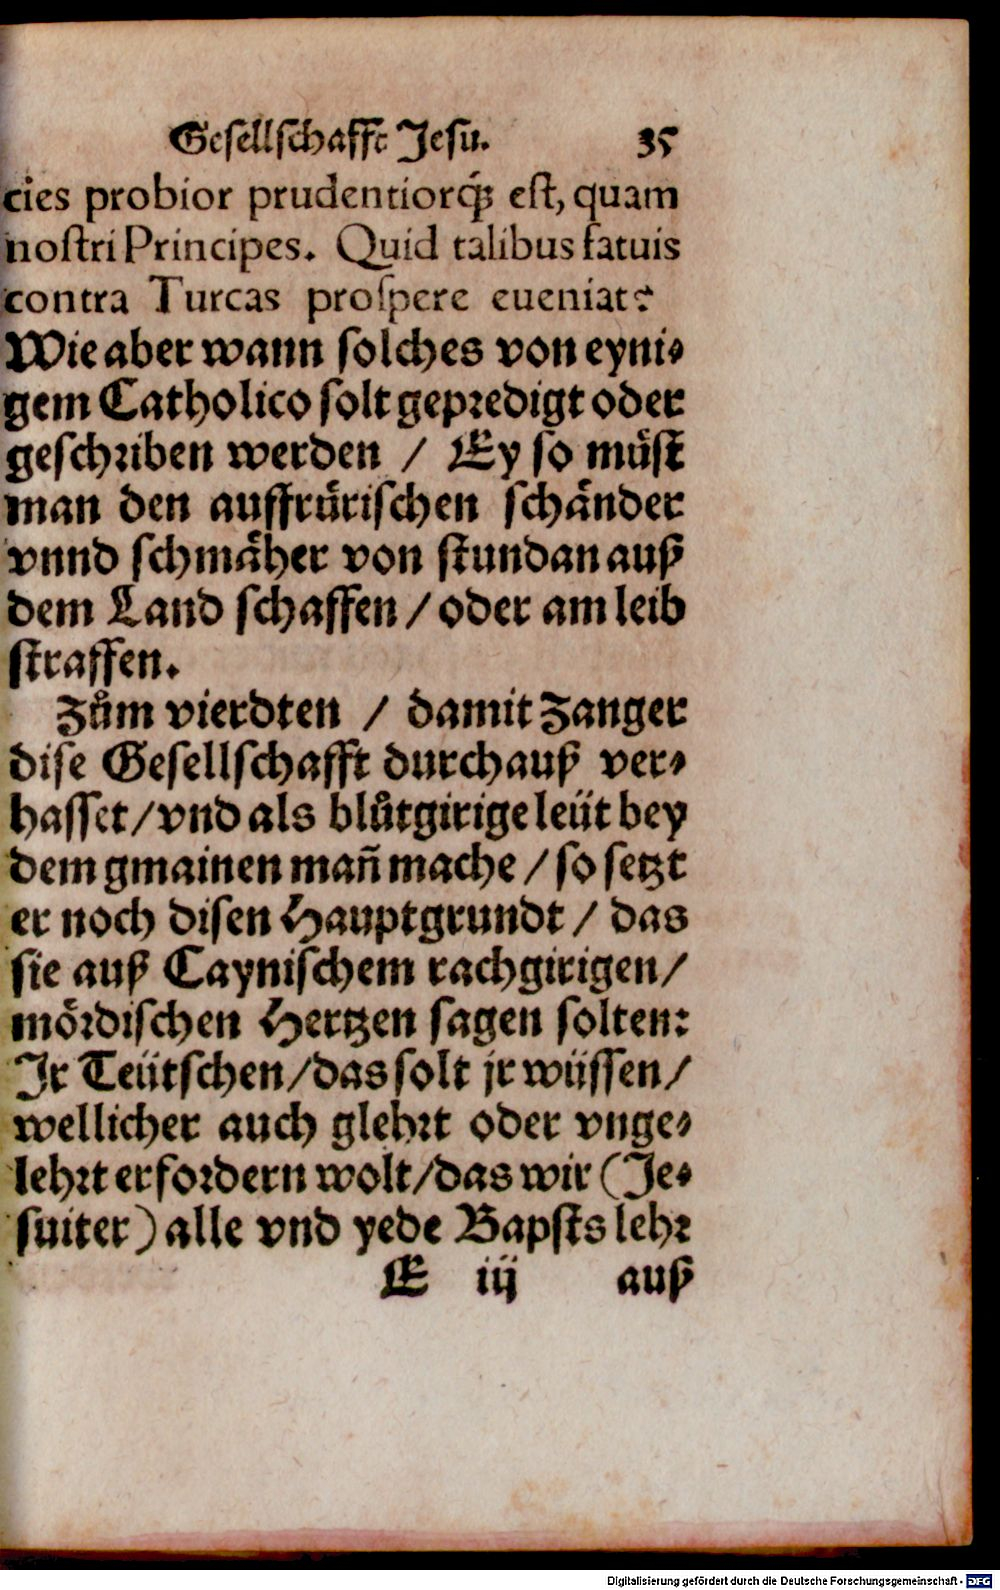 Gesellschafft Jesu. 35
cies probior prudentiorq́; est, quam
nostri Principes. Quid talibus fatuis
contra Turcas prospere eueniat?
Wie aber wann solches von eyni-
gem Catholico solt gepredigt oder
geschriben werden / Ey so můst
man den auffrůrischen schånder
vnnd schmåher von stundan auß
dem Land schaffen / oder am leib
straffen.
Zům vierdten / damit Zanger
dise Gesellschafft durchauß ver-
hasset / vnd als blůtgirige leüt bey
dem gmainen mañ mache / so setzt
er noch disen Hauptgrundt / das
sie auß Caynischem rachgirigen /
mördischen Hertzen sagen solten:
Jr Teütschen / das solt jr wüssen /
wellicher auch glehrt oder vnge-
lehrt erfordern wolt / das wir (Je-
suiter) alle vnd yede Bapsts lehr
E iij auß
Digitalisierung gefördert durch die Deutsche Forschungsgemeinschaft - DFG